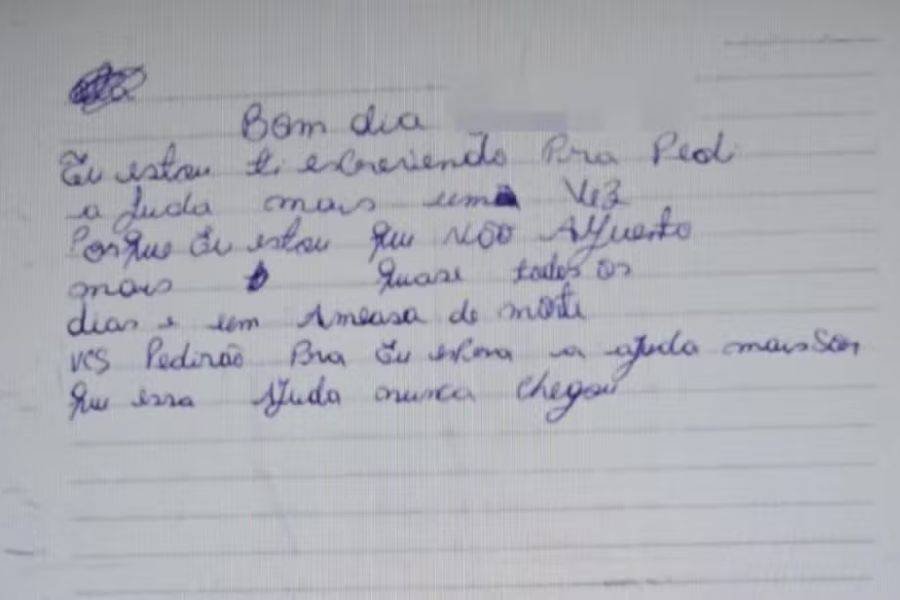 Bom dia
Eu estou ti escreviendo Pra Pedi
a Juda mais uma vez
Porque Eu estou que NÃO Aguento
mais quase todos os
dias e um Ameasa de morte
vcs Pedirão Pra Eu espera a ajuda mais Son
que essa Ajuda nunca chegou